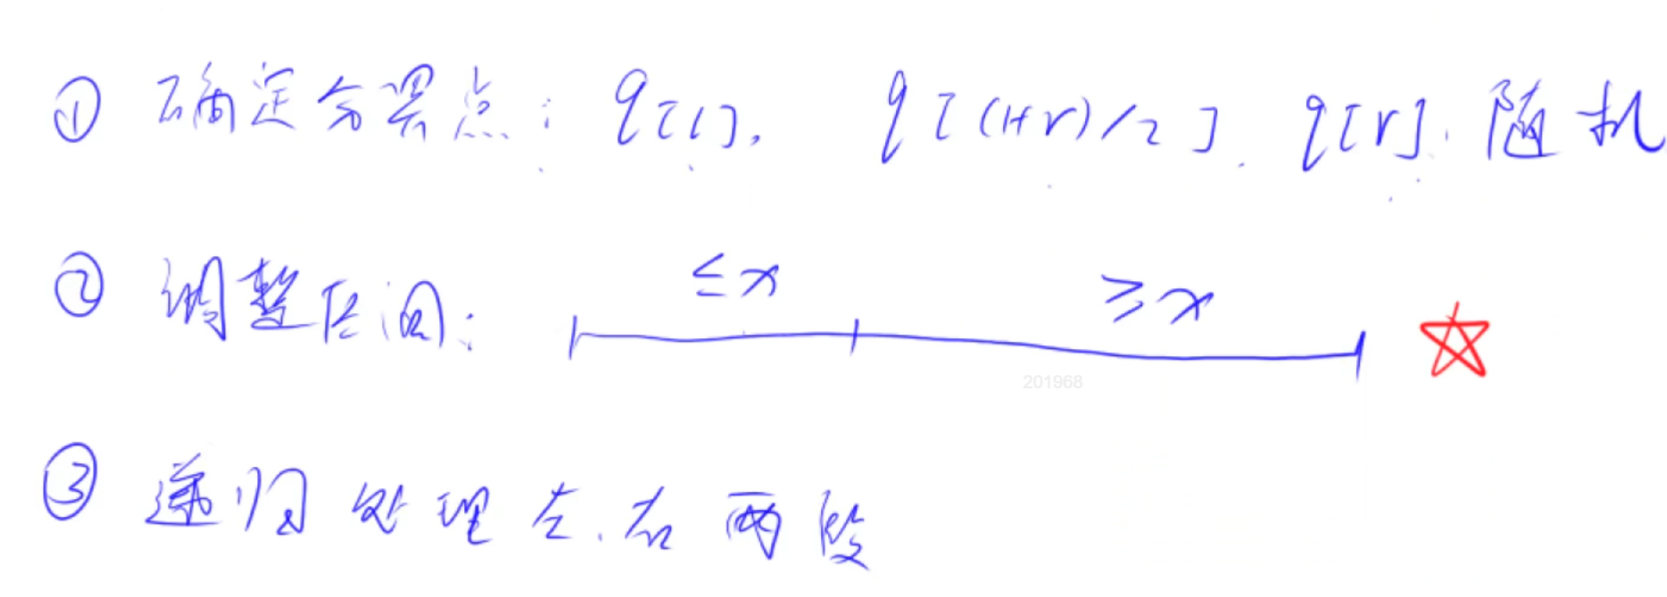 ① 确定分界点: q[l], q[(l+r)/2], q[r], 随机
② 调整区间: ≤x ≥x
201968
③ 递归处理左、右两段